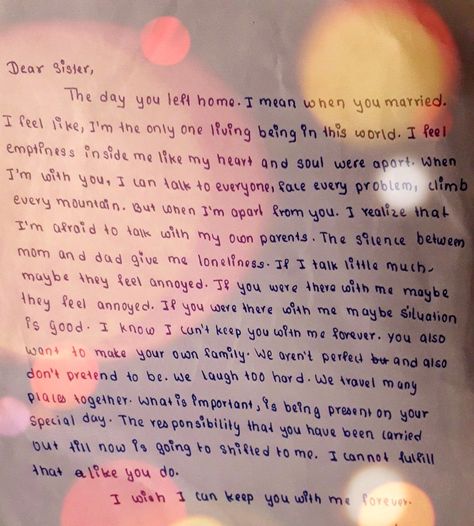 Dear Sister,
The day you left home. I mean when you married.
I feel like, I'm the only one living being in this world. I feel
emptiness inside me like my heart and soul were apart. When
I'm with you, I can talk to everyone, face every problem, climb
every mountain. But when I'm apart from you. I realize that
I'm afraid to talk with my own parents. The silence between
mom and dad give me loneliness. If I talk little much,
maybe they feel annoyed. If you were there with me maybe
they feel annoyed. If you were there with me maybe situation
is good. I know I can't keep you with me forever. you also
want to make your own family. We aren't perfect but and also
don't pretend to be. we laugh too hard. We travel many
places together. What is important, is being present on your
special day. The responsibility that you have been carried
out till now is going to shifted to me. I cannot fulfill
that alike you do.
I wish I can keep you with me forever.